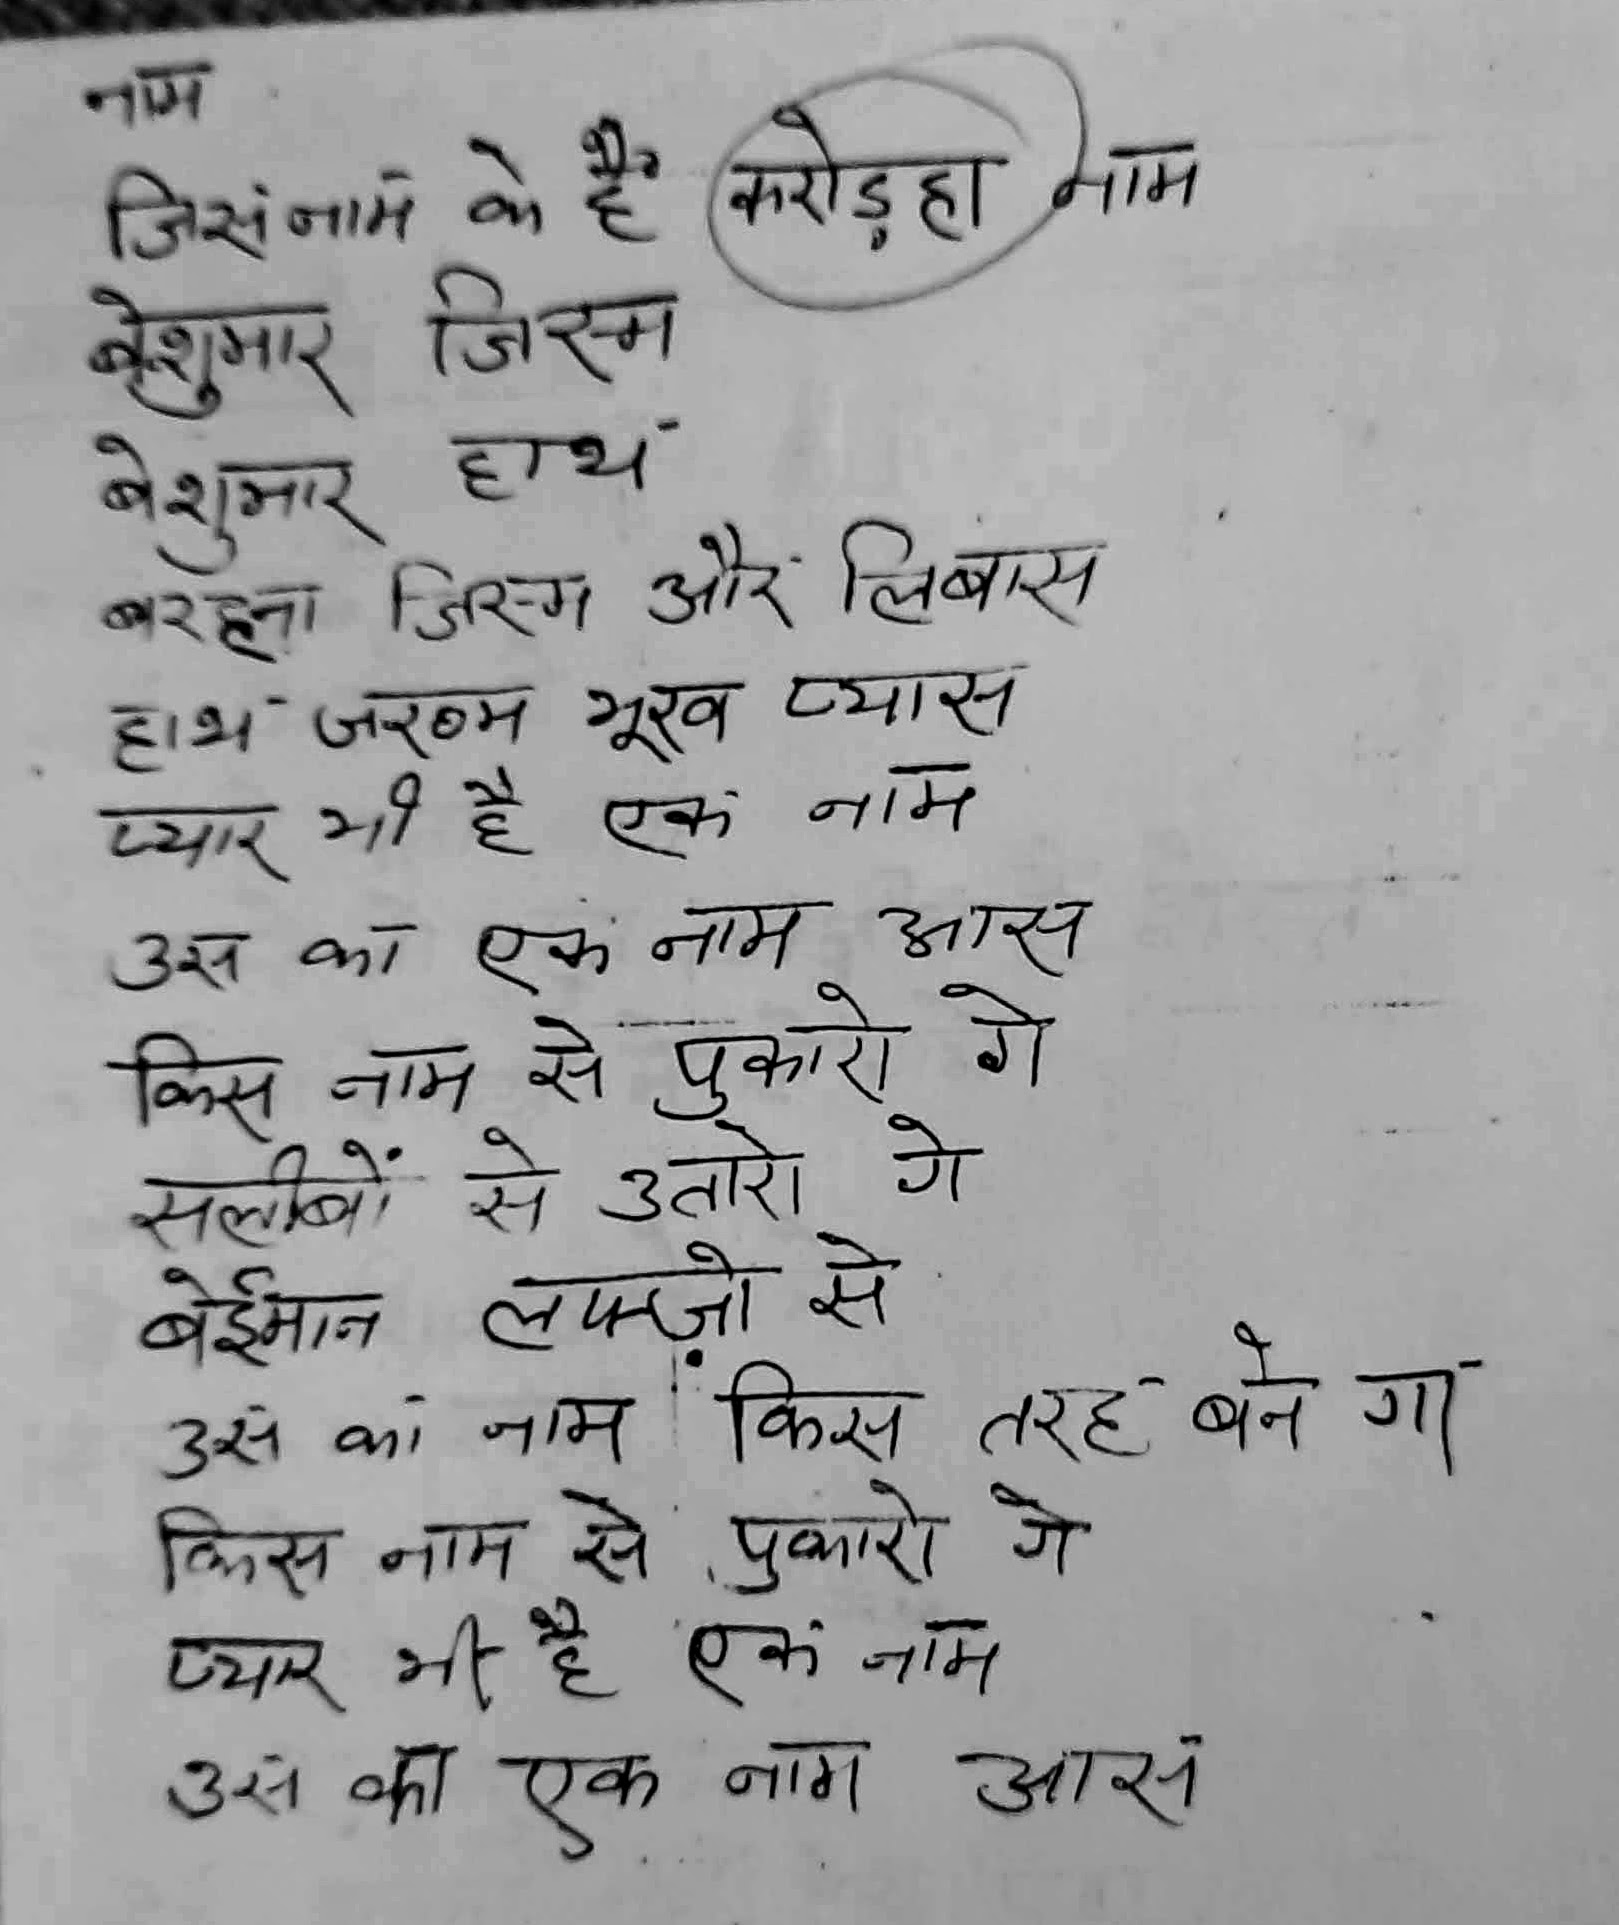 नाम
जिस नाम के हैं करोड़हा नाम
बेशुमार जिस्म
बेशुमार हाथ
बरहना जिस्म और लिबास
हाथ जख्म भूख प्यास
प्यार भी है एक नाम
उस का एक नाम आस
किस नाम से पुकारो गे
सलीबों से उतारो गे
बेईमान लफ्ज़ो से
उस का नाम किस तरह बने गा
किस नाम से पुकारो गे
प्यार भी है एक नाम
उस का एक नाम आस